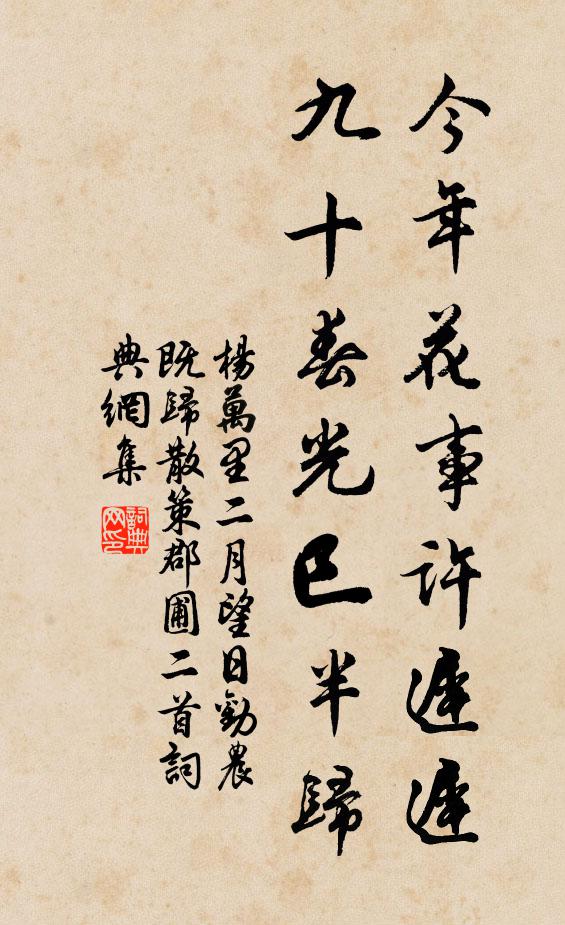 今年花事許遲遲
九十春光已半歸
楊萬里二月望日勸農
既歸散策郡圃二首詞
典網集
詞典
网印